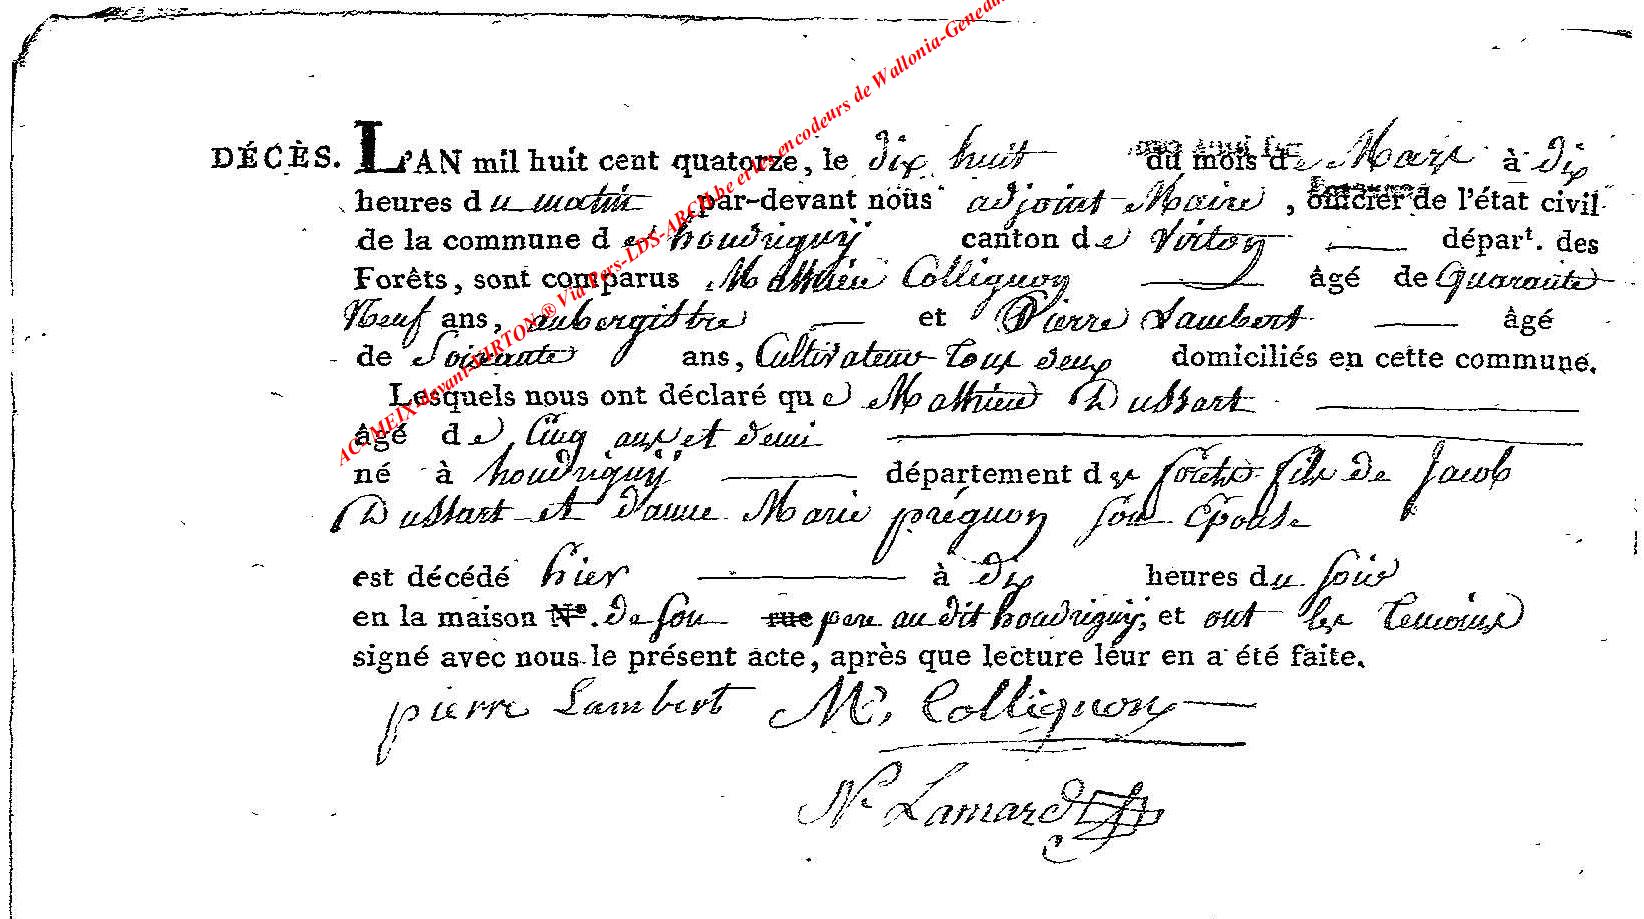 DÉCÈS. L'AN mil huit cent quatorze, le dix huit du mois de Mars à dix
heures du matin par-devant nous adjoint Maire, officier de l'état civil
de la commune des houdrigny canton de Virton départ. des
Forêts, sont comparus Mathieu Collignon âgé de Quarante
Neuf ans, aubergistre et Pierre Lambert âgé
de Soixante ans, Cultivateur tous deux domiciliés en cette commune.
Lesquels nous ont déclaré que Mathieu Dussart
âgé de Cinq ans et demi
né à houdrigny département des forêts fils de Jacob
Dussart et d'anne Marie prégnon son Epouse
est décédé hier à dix heures du soir
en la maison N°. de son rue pere au dit houdrigny, et ont les temoins
signé avec nous le présent acte, après que lecture leur en a été faite.
pierre Lambert M, Collignon
N Lamard
ACJMEIX devant VIRTON ® Via Pers-LDS-ARCH.be et les encodeurs de Wallonia-Genea